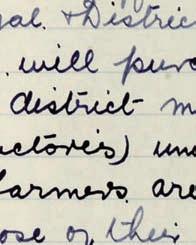 al. & Distric
. will purc
district m
ctories) un
farmers are
ose of their